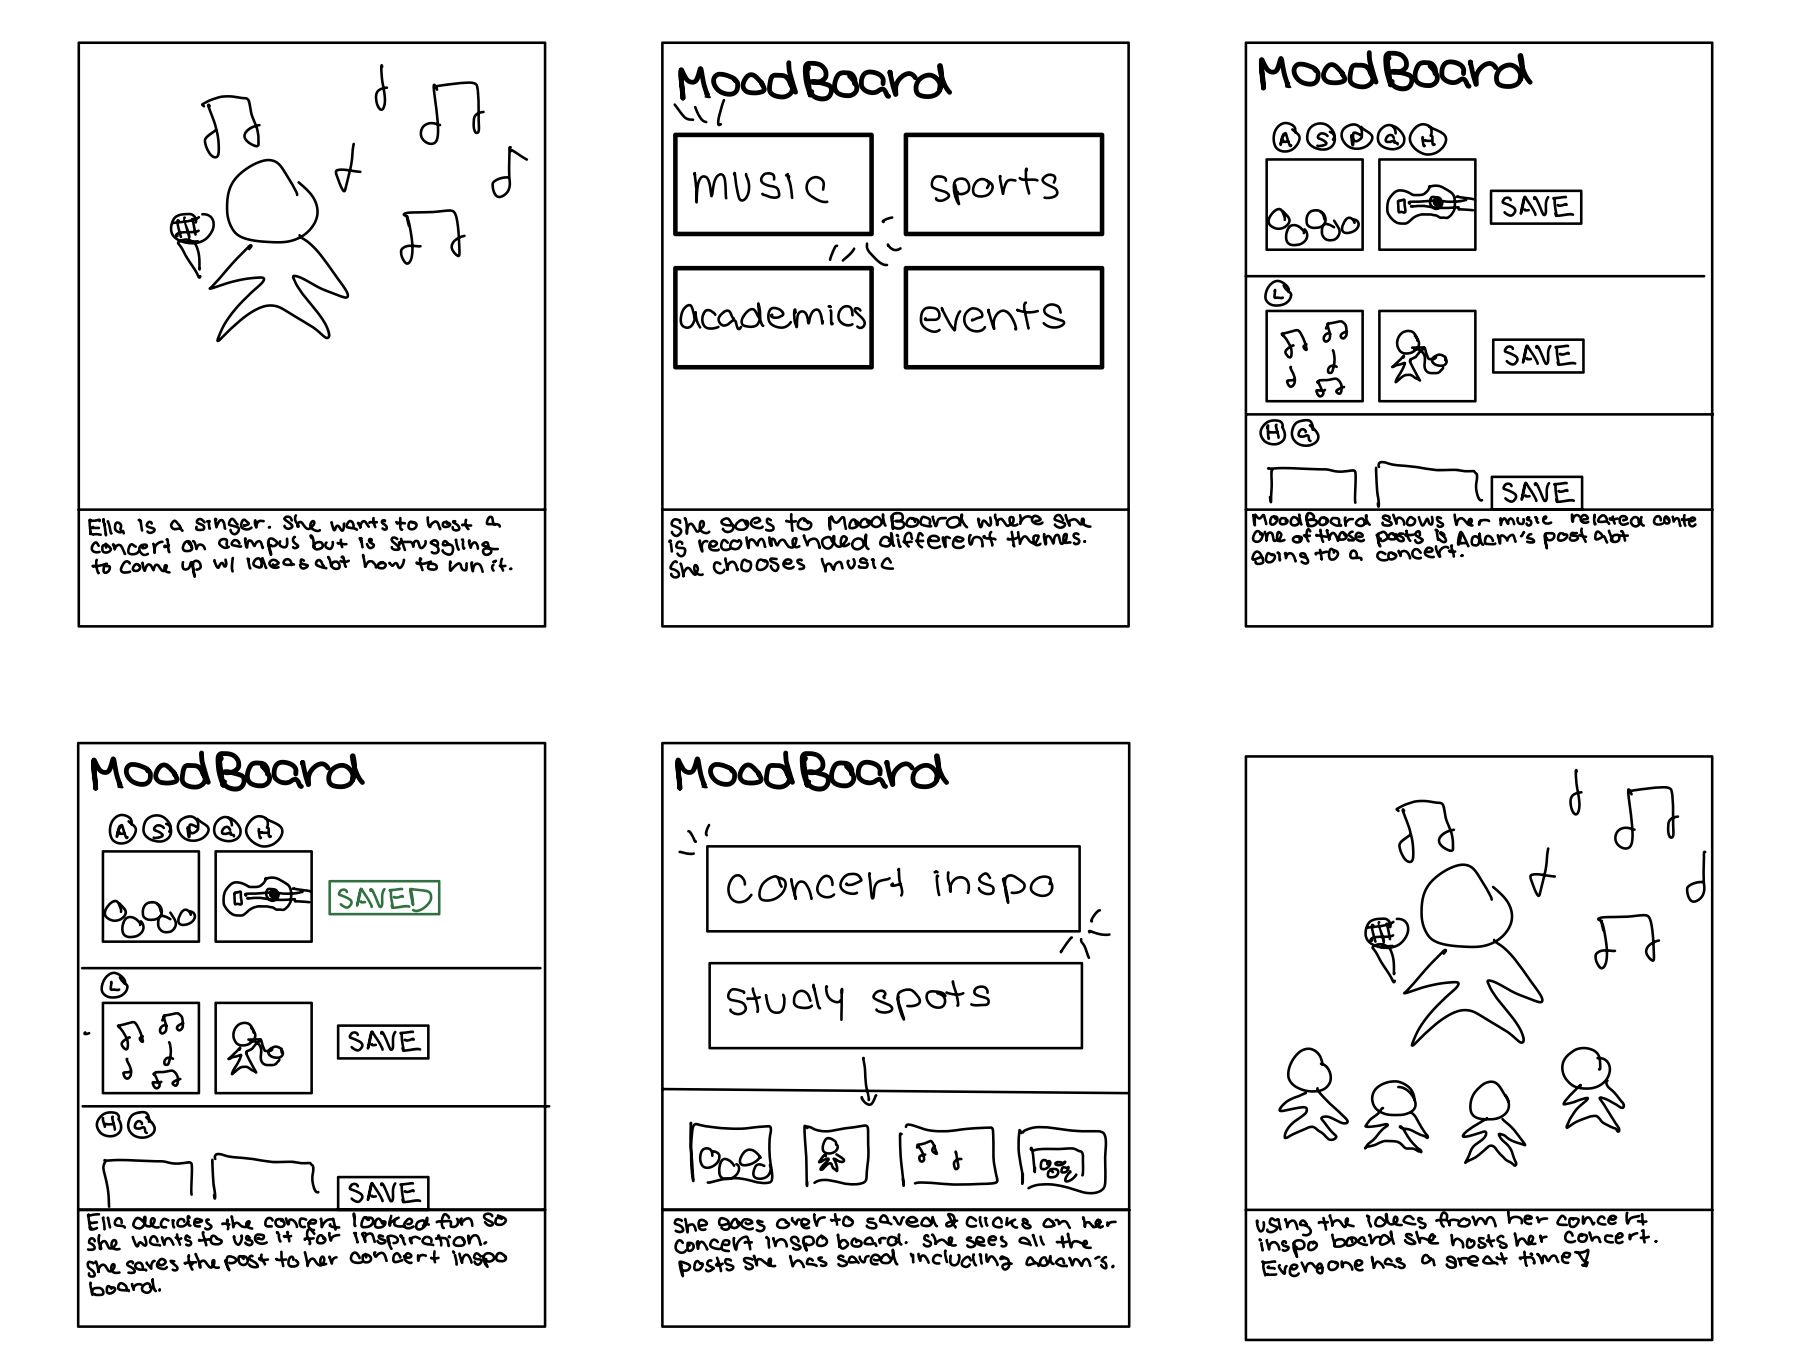 Ella is a singer. She wants to host a
concert on campus but is struggling
to come up w/ ideas abt how to run it.
MoodBoard
music
sports
academics
events
She goes to MoodBoard where she
is recommended different themes.
She chooses music
MoodBoard
A S P G H
SAVE
L
SAVE
H G
SAVE
MoodBoard shows her music related conte
One of those posts is Adam's post abt
going to a concert.
MoodBoard
A S P G H
SAVED
L
SAVE
H G
SAVE
Ella decides the concert looked fun so
she wants to use it for inspiration.
She saves the post to her concert inspo
board.
MoodBoard
concert inspo
study spots
She goes over to saved & clicks on her
concert inspo board. She sees all the
posts she has saved including adam's.
using the ideas from her concert
inspo board she hosts her concert.
Everyone has a great time!